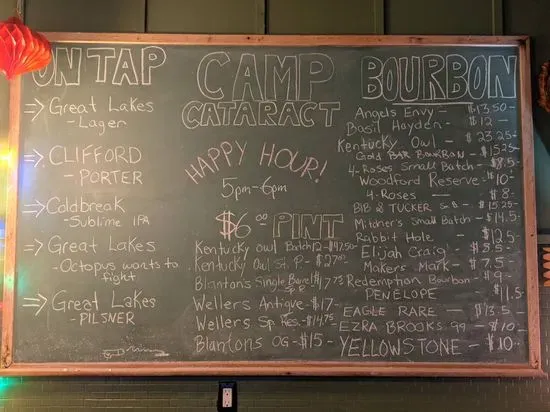 ON TAP
⇒ Great Lakes
- Lager
⇒ CLIFFORD
- PORTER
⇒ Coldbreak
- Sublime IPA
⇒ Great Lakes
- Octopus wants to
fight
⇒ Great Lakes
- PILSNER
CAMP
CATARACT
HAPPY HOUR!
5pm-6pm
$6.00 PINT
Kentucky Owl Batch 12 - $47.50
Kentucky Owl St. P. - $27.00
Blantons Single Barrel $17.75
Wellers Antique - $17-
Wellers Sp. Res. - $14.75
Blantons OG - $15-
BOURBON
Angels Envy - $13.50-
Basil Hayden - $12-
Kentucky Owl - $23.25-
Gold BAR BOURBON - $15.25-
4-Roses Small Batch - $8.5-
Woodford Reserve - $10-
4-Roses - $8-
BIB & TUCKER - $15.25-
Mitcher's Small Batch - $14.5-
Rabbit Hole - $12.5
Elijah Craig - $8.5-
Makers Mark - $7.5-
Redemption Bourbon - $9-
PENELOPE $11.5-
EAGLE RARE - $13.5-
EZRA BROOKS 99 - $10-
YELLOWSTONE - $10-